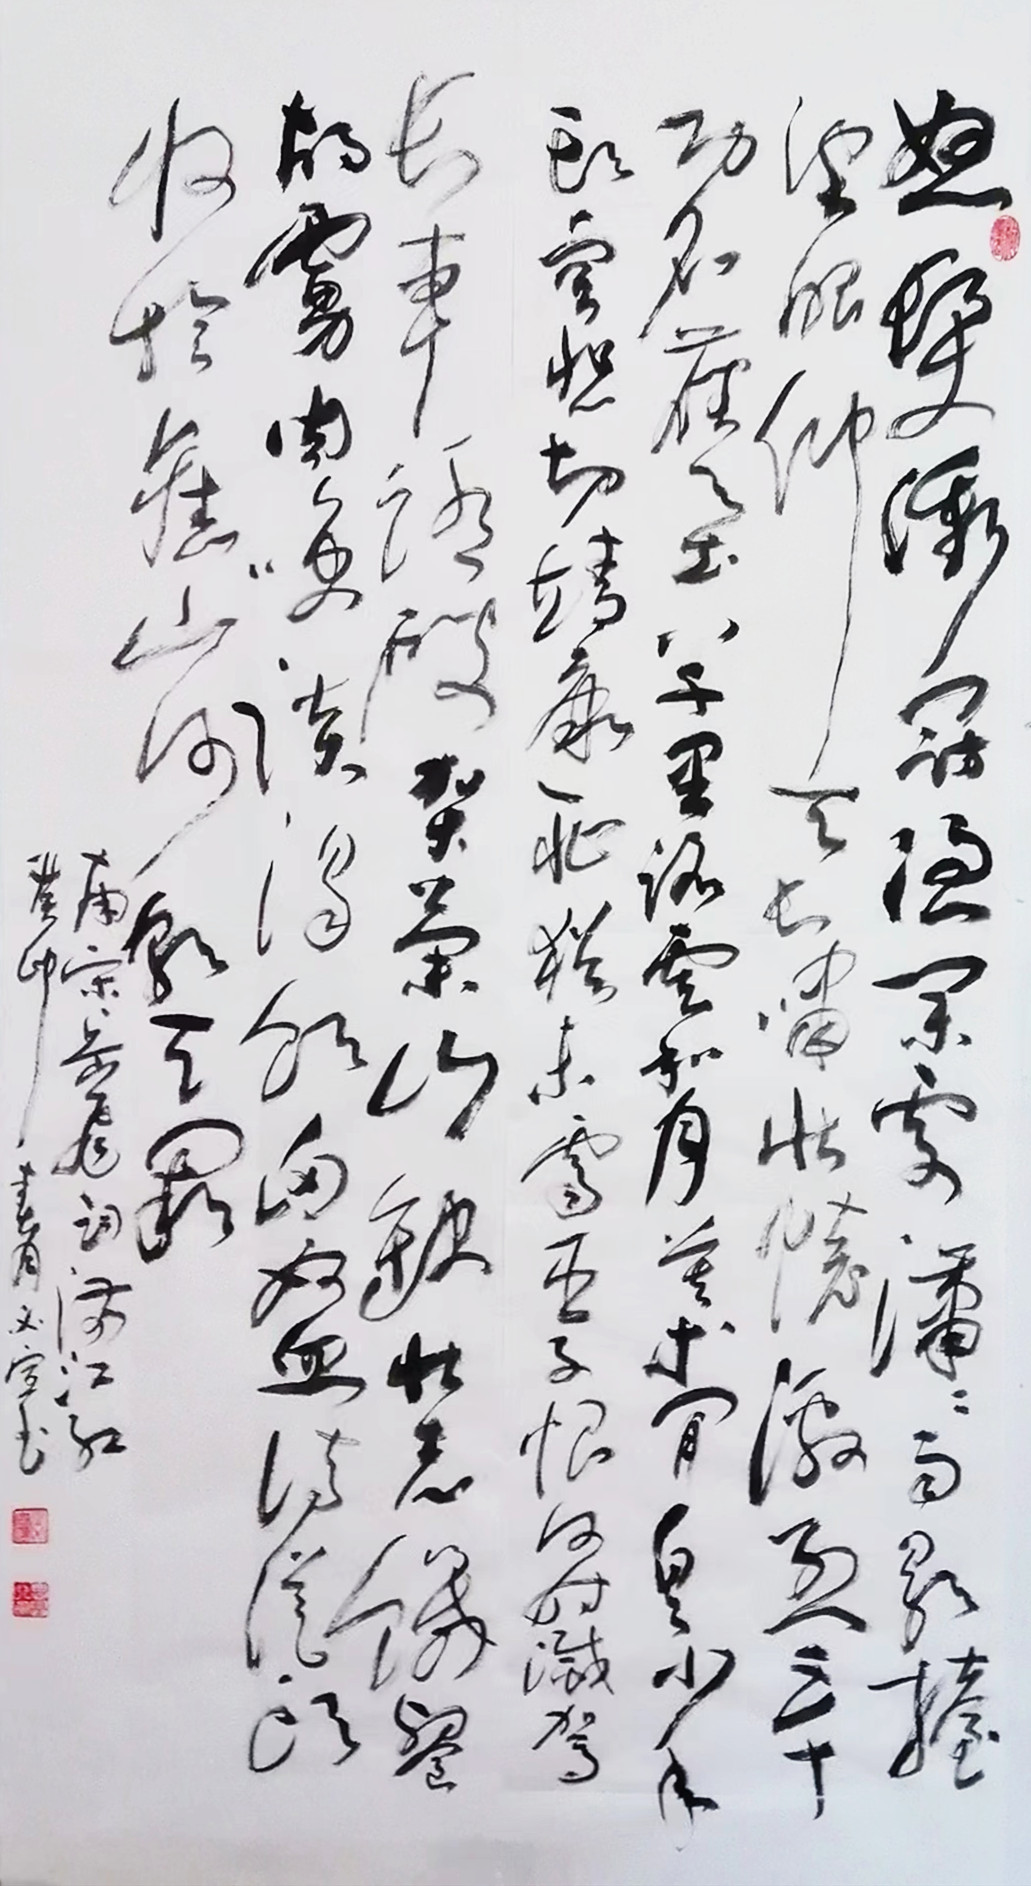 怒髮衝冠憑闌處瀟瀟雨歇擡
望眼仰天長嘯壯懷激烈三十
功名塵与土八千里路雲和月莫等閒白了少年
頭空悲切靖康恥猶未雪臣子恨何時滅駕
長車踏破賀蘭山缺壯志饑餐
胡虜肉笑談渴飲匈奴血待從頭
收拾舊山河朝天闕
南宋岳飛詞滿江红
癸卯春月书